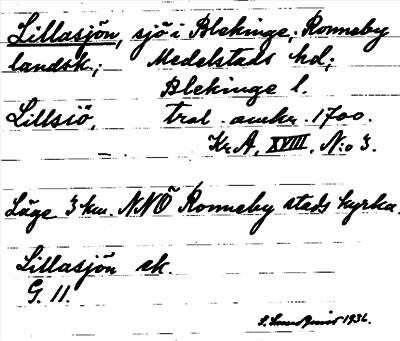 Lillasjön, sjö i Blekinge, Ronneby
landsk.; Medelstads hd;
Blekinge l.
Lillsiö, trol. omkr. 1700.
Kr A, XVIII, N:o 3.
Läge 3 km. NNÖ Ronneby stads kyrka.
Lillasjön ek.
G. 11.
1936.